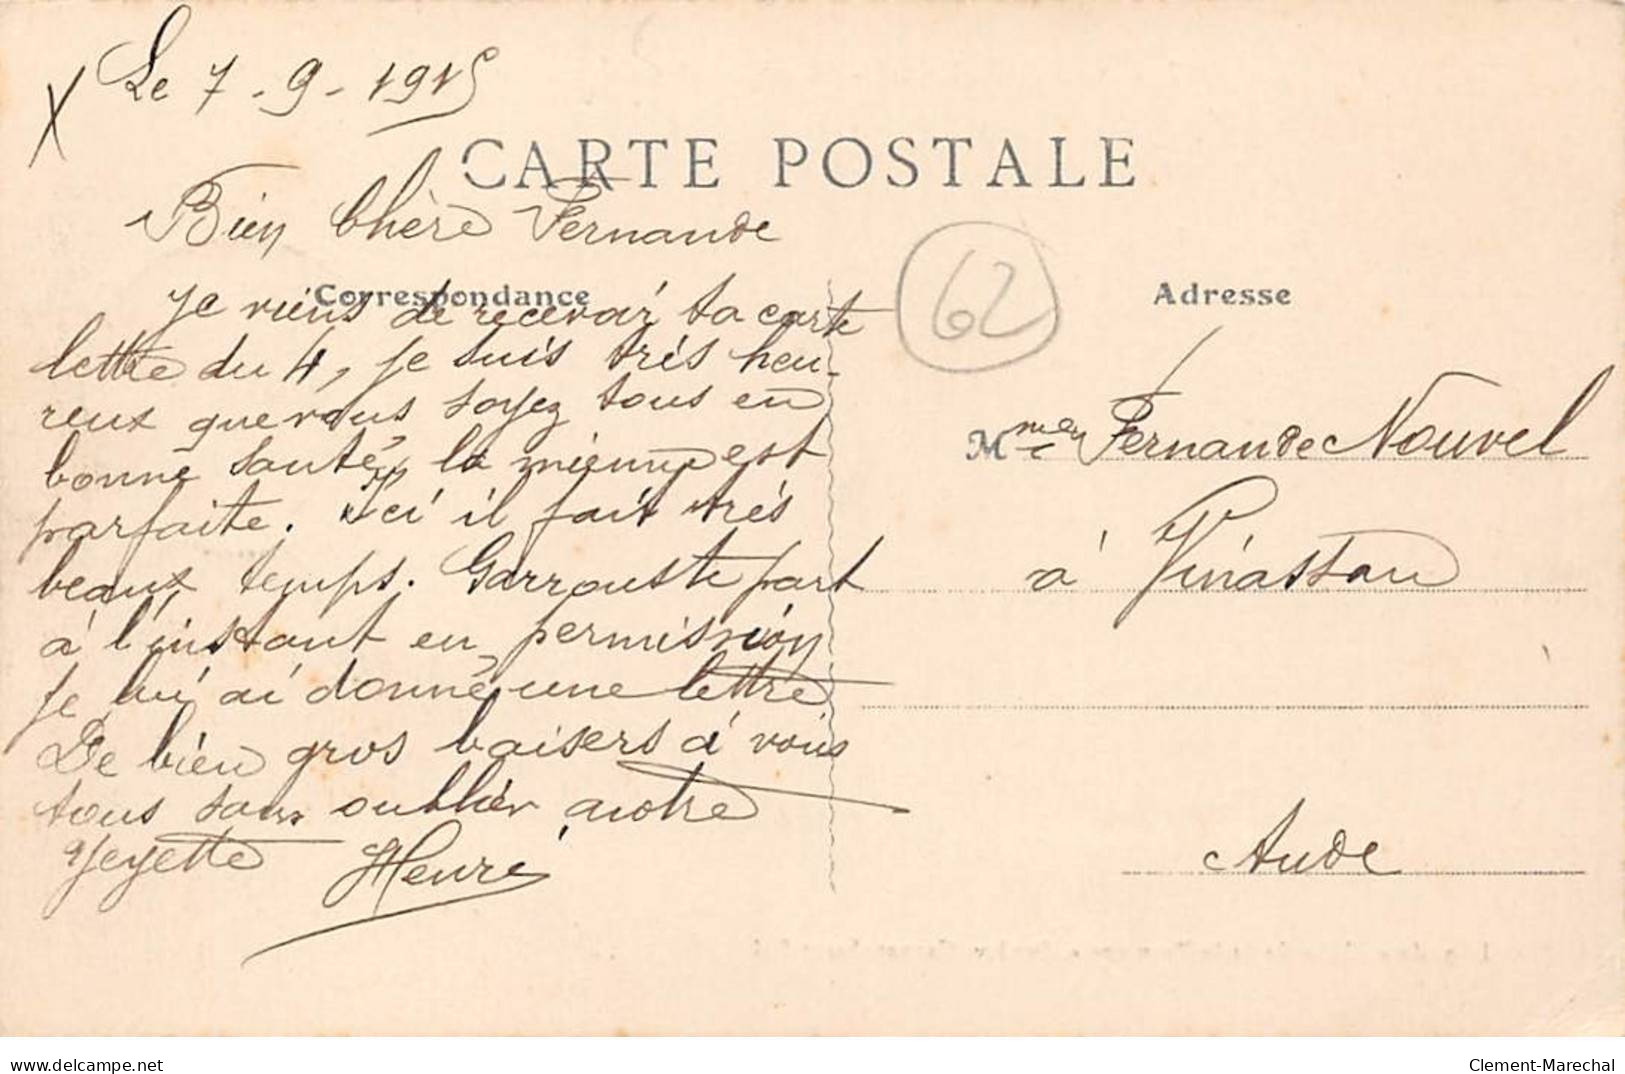 X Le 7-9-1915
CARTE POSTALE
Bien Chère Fernande
Correspondance
Je viens de recevoir ta carte
lettre du 4, je suis très heu-
reux que vous soyez tous en
bonne santé, la mienne est
parfaite. Ici il fait très
beau temps. Garrouste part
à l'instant en permission
je lui ai donné une lettre
De bien gros baisers à vous
tous sans oublier notre
Yeyette Henri
62
Adresse
Mme Fernande Nouvel
à Vinassan
Aude
delcampe.net
Clement-Marechal